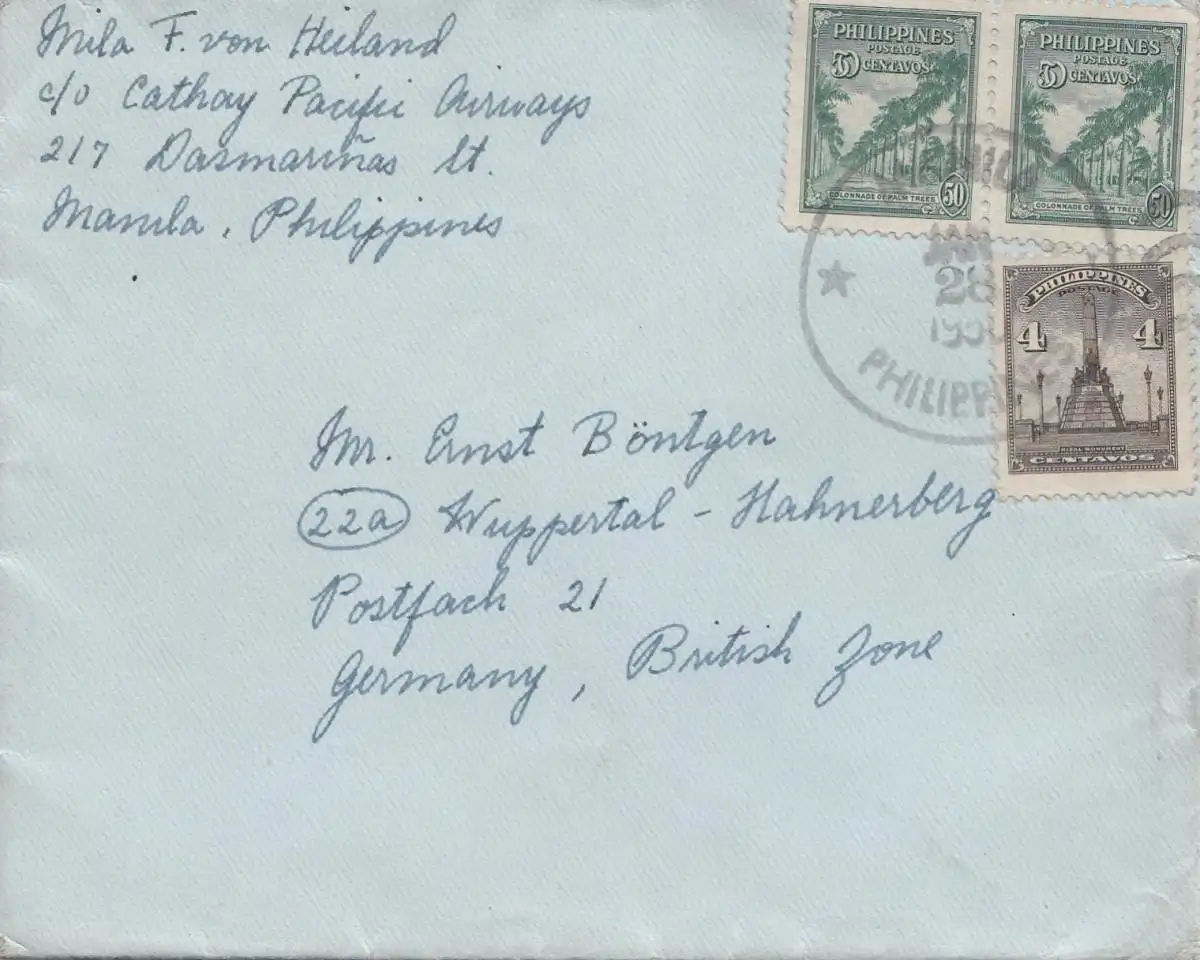 Mila F. von Heiland
c/o Cathay Pacific Airways
217 Dasmariñas St.
Manila, Philippines
PHILIPPINES
POSTAGE
50 CENTAVOS
COLONNADE OF PALM TREES
50
PHILIPPINES
POSTAGE
50 CENTAVOS
COLONNADE OF PALM TREES
50
JAN
28
PHILIPPINES
POSTAGE
4 4
RIZAL MONUMENT
CENTAVOS
Mr. Ernst Böntgen
22a Wuppertal - Hahnerberg
Postfach 21
Germany, British Zone